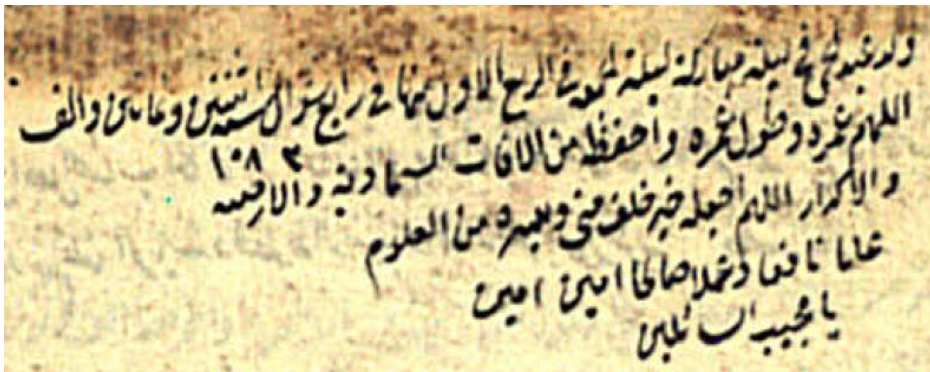 ولد عبد الحي في ليلة مباركة ليلة الجمعة في الربع الاول منها في رابع شوال لسنة اثنتين وثمانين والف
اللهم عمره وطول عمره واحفظه من الافات السماوية والارضية
١٠٨٢
والاكدار اللهم اجعله خير خلف مني ويسره من العلوم
علما نافعا وعملا صالحا امين امين
يا مجيب السائلين